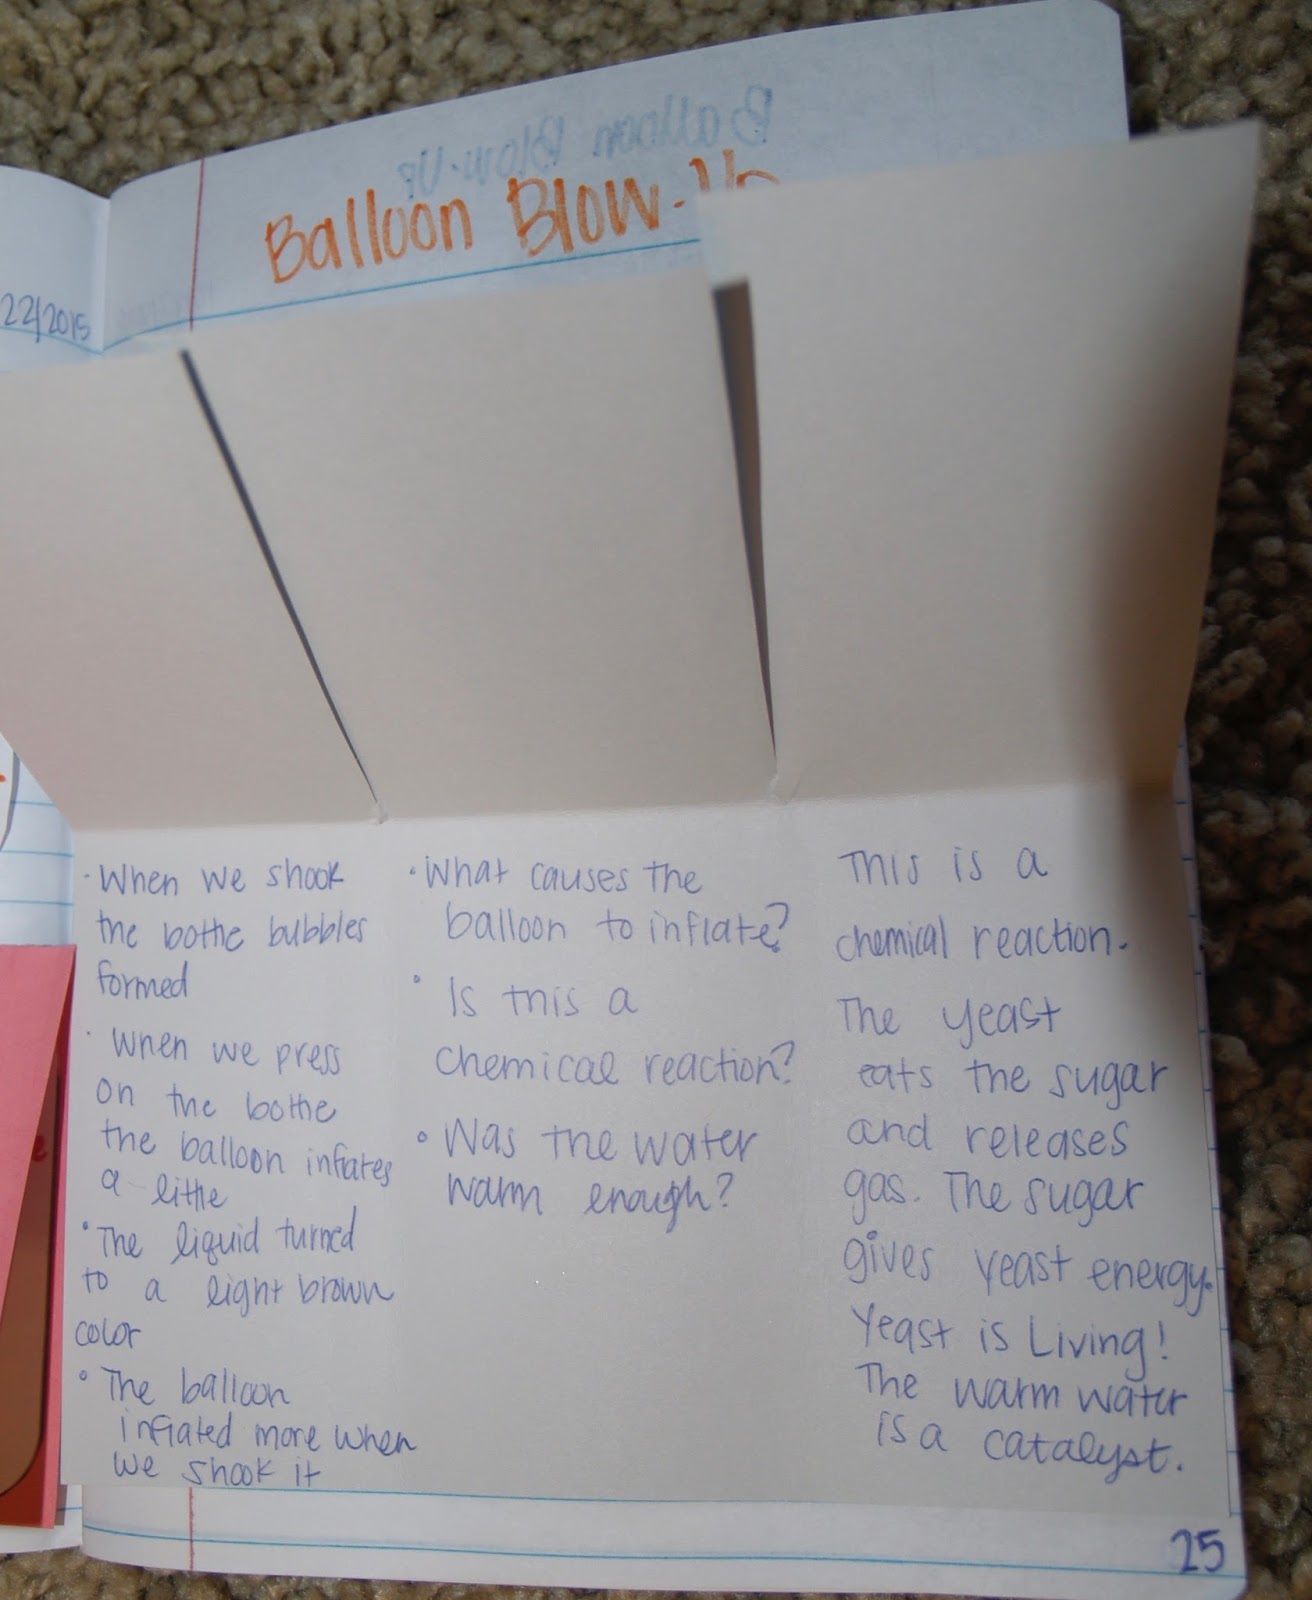 Balloon Blow-Up
Balloon Blow-Up
22/2015
· When we shook
the bottle bubbles
formed
· When we press
on the bottle
the balloon inflates
a little
· The liquid turned
to a light brown
color
· The balloon
inflated more when
we shook it
· What causes the
balloon to inflate?
· Is this a
chemical reaction?
· Was the water
warm enough?
This is a
chemical reaction.
The yeast
eats the sugar
and releases
gas. The sugar
gives yeast energy.
Yeast is Living!
The warm water
is a catalyst.
25